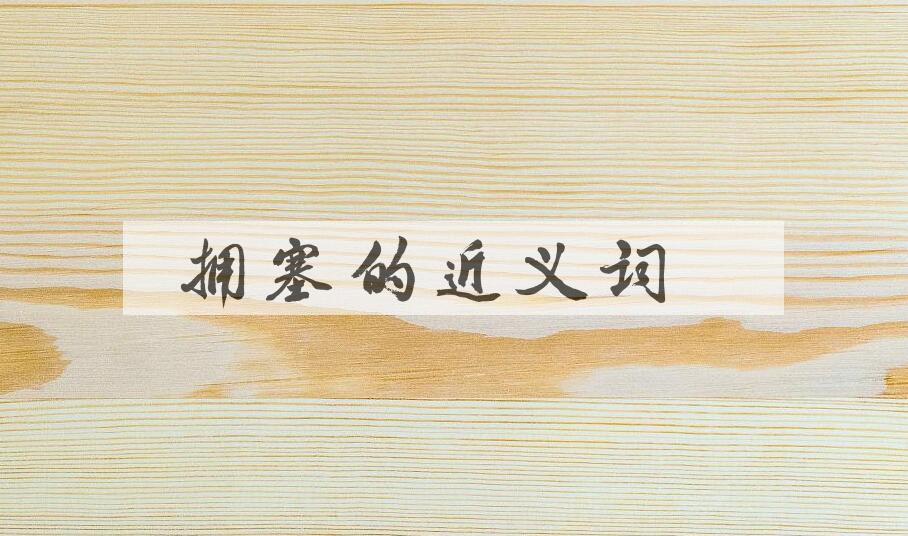 拥塞的近义词